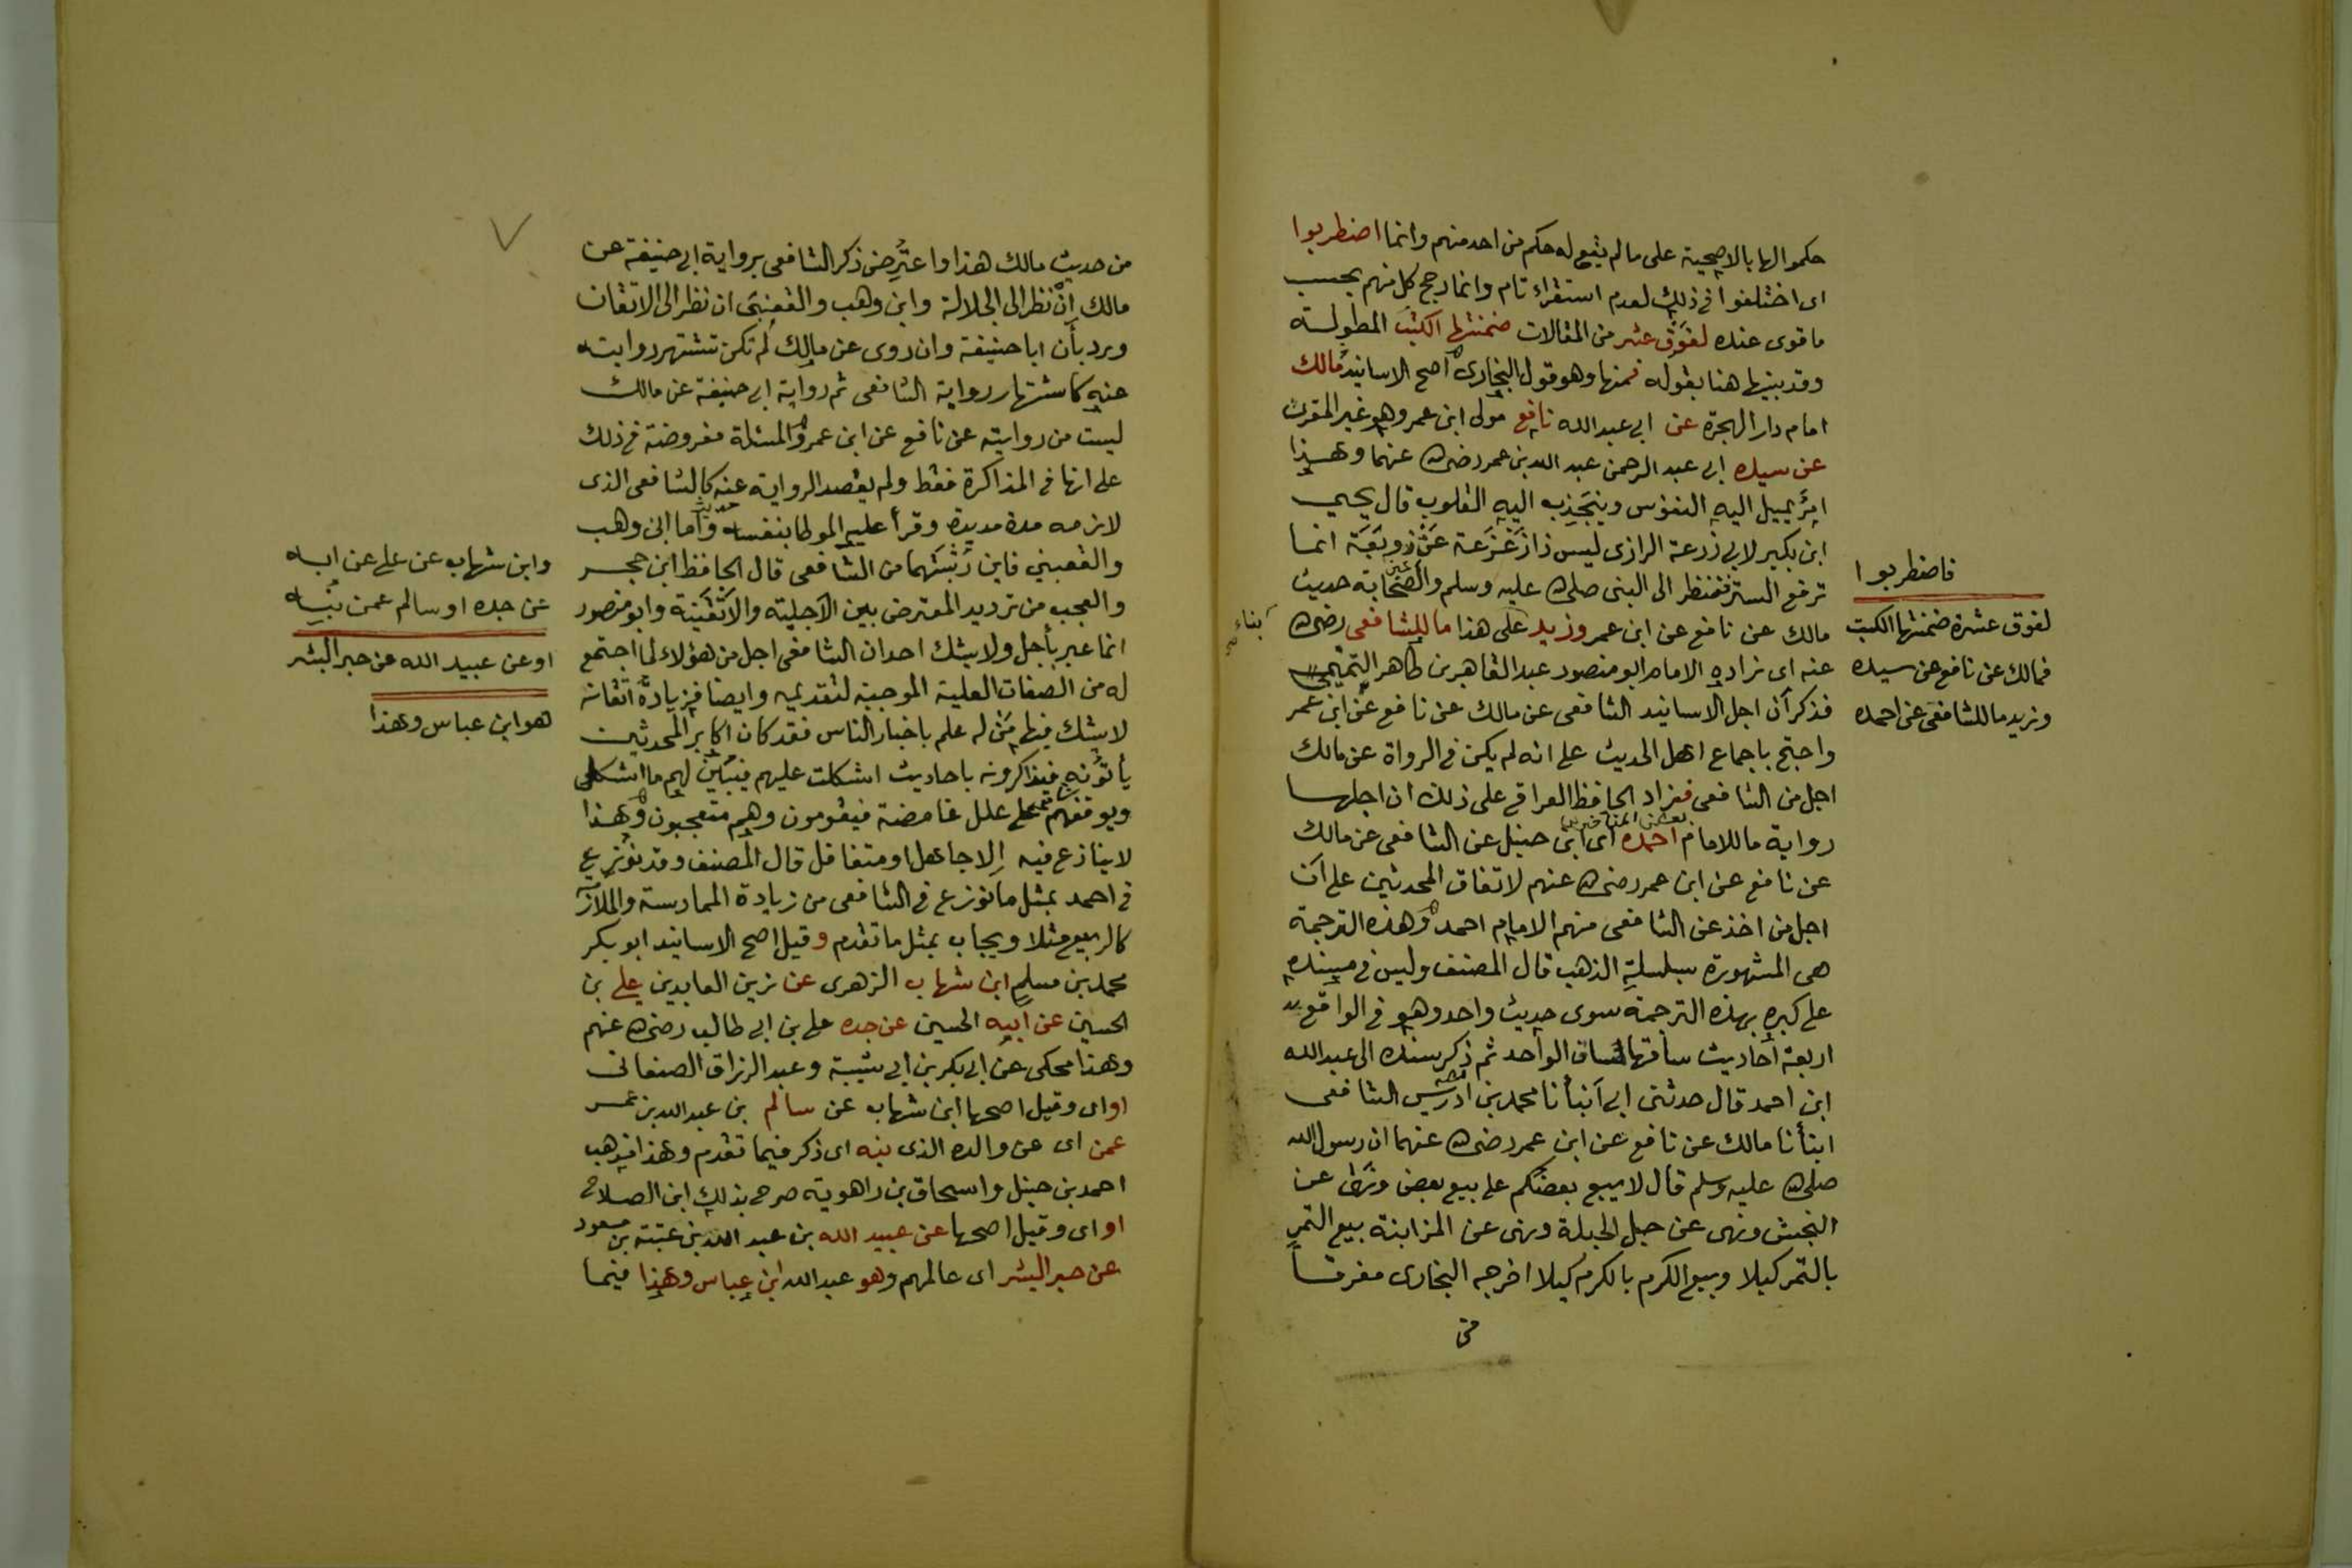 حكموا لها بالاصحية على ما لم يقع له حكم من احد منهم وانما اضطربوا
اى اختلفوا فى ذلك لعدم استقراء تام وانما رجح كل منهم بحسب
ما قوى عنده لفوق عشر من المقالات ضمنتها الكتب المطولة
وقد بينها هنا بقوله فمنها وهو قول البخارى اصح الاسانيد مالك
امام دار الهجرة عن ابى عبد الله نافع مولى ابن عمر وهو غير المقرى
عن سيده ابى عبد الرحمن عبد الله بن عمر رضى الله عنهما وهذا
امر يميل اليه النفوس وينجذب اليه القلوب قال يحيى
ابن بكير لابى زرعة الرازى ليس ذا زعزعة عن زوبعة انما
ترفع الستر فتنظر الى النبى صلى الله عليه وسلم والصحابة حديث
مالك عن نافع عن ابن عمر وزيد على هذا ما للشافعى رضى الله
عنه اى زاده الامام ابو منصور عبد القاهر بن طاهر التميمى
فذكر أن اجل الاسانيد الشافعى عن مالك عن نافع عن ابن عمر
واحتج باجماع اهل الحديث على انه لم يكن فى الرواة عن مالك
اجل من الشافعى فزاد الحافظ العراقى على ذلك ان اجلها
بعض المتأخرين
رواية ما للامام احمد اى ابن حنبل عن الشافعى عن مالك
عن نافع عن ابن عمر رضى الله عنهم لاتفاق المحدثين على أن
اجل من اخذ عن الشافعى منهم الامام احمد وهذه الترجمة
هى المشهورة بسلسلة الذهب قال المصنف وليس فى مسنده
على كبره بهذه الترجمة سوى حديث واحد وهو فى الواقع
اربعة احاديث ساقها مساق الواحد ثم ذكر سنده الى عبد الله
ابن احمد قال حدثنى ابى أنبأنا محمد بن ادريس الشافعى
انبأنا مالك عن نافع عن ابن عمر رضى الله عنهما ان رسول الله
صلى الله عليه وسلم قال لا يبيع بعضكم على بيع بعض ونهى عن
النجش ونهى عن حبل الحبلة ونهى عن المزابنة بيع الثمر
بالتمر كيلا وبيع الكرم بالكرم كيلا اخرجه البخارى مفرقا
من
فاضطربوا
لفوق عشرة ضمنتها الكتب
فمالك عن نافع عن سيده
وزيد ما للشافعى عن احمده
من حديث مالك هذا واعترض ذكر الشافعى برواية ابى حنيفة عن
مالك إن نظر الى الجلالة وابن وهب والقعنبى ان نظر الى الاتقان
ورد بأن ابا حنيفة وان روى عن مالك لم تكن تشتهر روايته
عنه كاشتهار رواية الشافعى ثم رواية ابى حنيفة عن مالك
ليست من روايته عن نافع عن ابن عمر والمسئلة مفروضة فى ذلك
على انها فى المذاكرة فقط ولم يقصد الرواية عنه كالشافعى الذى
لازمه مدة مديدة وقرأ عليه الموطا بنفسه واما ابن وهب
والقعنبى فاين رتبتهما من الشافعى قال الحافظ ابن حجر
والعجب من ترديد المعترض بين الاجلية والاتقنية وابو منصور
انما عبر بأجل ولا يشك احد ان الشافعى اجل من هؤلاء لما اجتمع
له من الصفات العلية الموجبة لتقديمه وايضا فزيادة اتقانه
لا يشك فيها من له علم باخبار الناس فقد كان اكابر المحدثين
يأتونه فيذاكرونه باحاديث اشكلت عليهم فيبين لهم ما اشكل
ويوقفهم على علل غامضة فيقومون وهم متعجبون وهذا
لا ينازع فيه إلا جاهل او متغافل قال المصنف وقد نوزع
فى احمد بمثل ما نوزع فى الشافعى من زيادة الممارسة والملازمة
كالربيع مثلا ويجاب بمثل ما تقدم وقيل اصح الاسانيد ابو بكر
محمد بن مسلم ابن شهاب الزهرى عن زين العابدين على بن
الحسين عن ابيه الحسين عن جده على بن ابى طالب رضى الله عنهم
وهذا محكى عن ابى بكر بن ابى شيبة وعبد الرزاق الصنعانى
او اى وقيل اصحها ابن شهاب عن سالم بن عبد الله بن عمر
عمن اى عن والده الذى بنه اى ذكر فيما تقدم وهذا مذهب
احمد بن حنبل واسحاق بن راهوية صرح بذلك ابن الصلاح
او اى وقيل اصحها عن عبيد الله بن عبد الله بن عتبة بن مسعود
عن حبر البشر اى عالمهم وهو عبد الله ابن عباس وهذا فيما
وابن شهاب عن على عن ابيه
عن جده او سالم عمن بنبه
او عن عبيد الله عن حبر البشر
هو ابن عباس وهذا